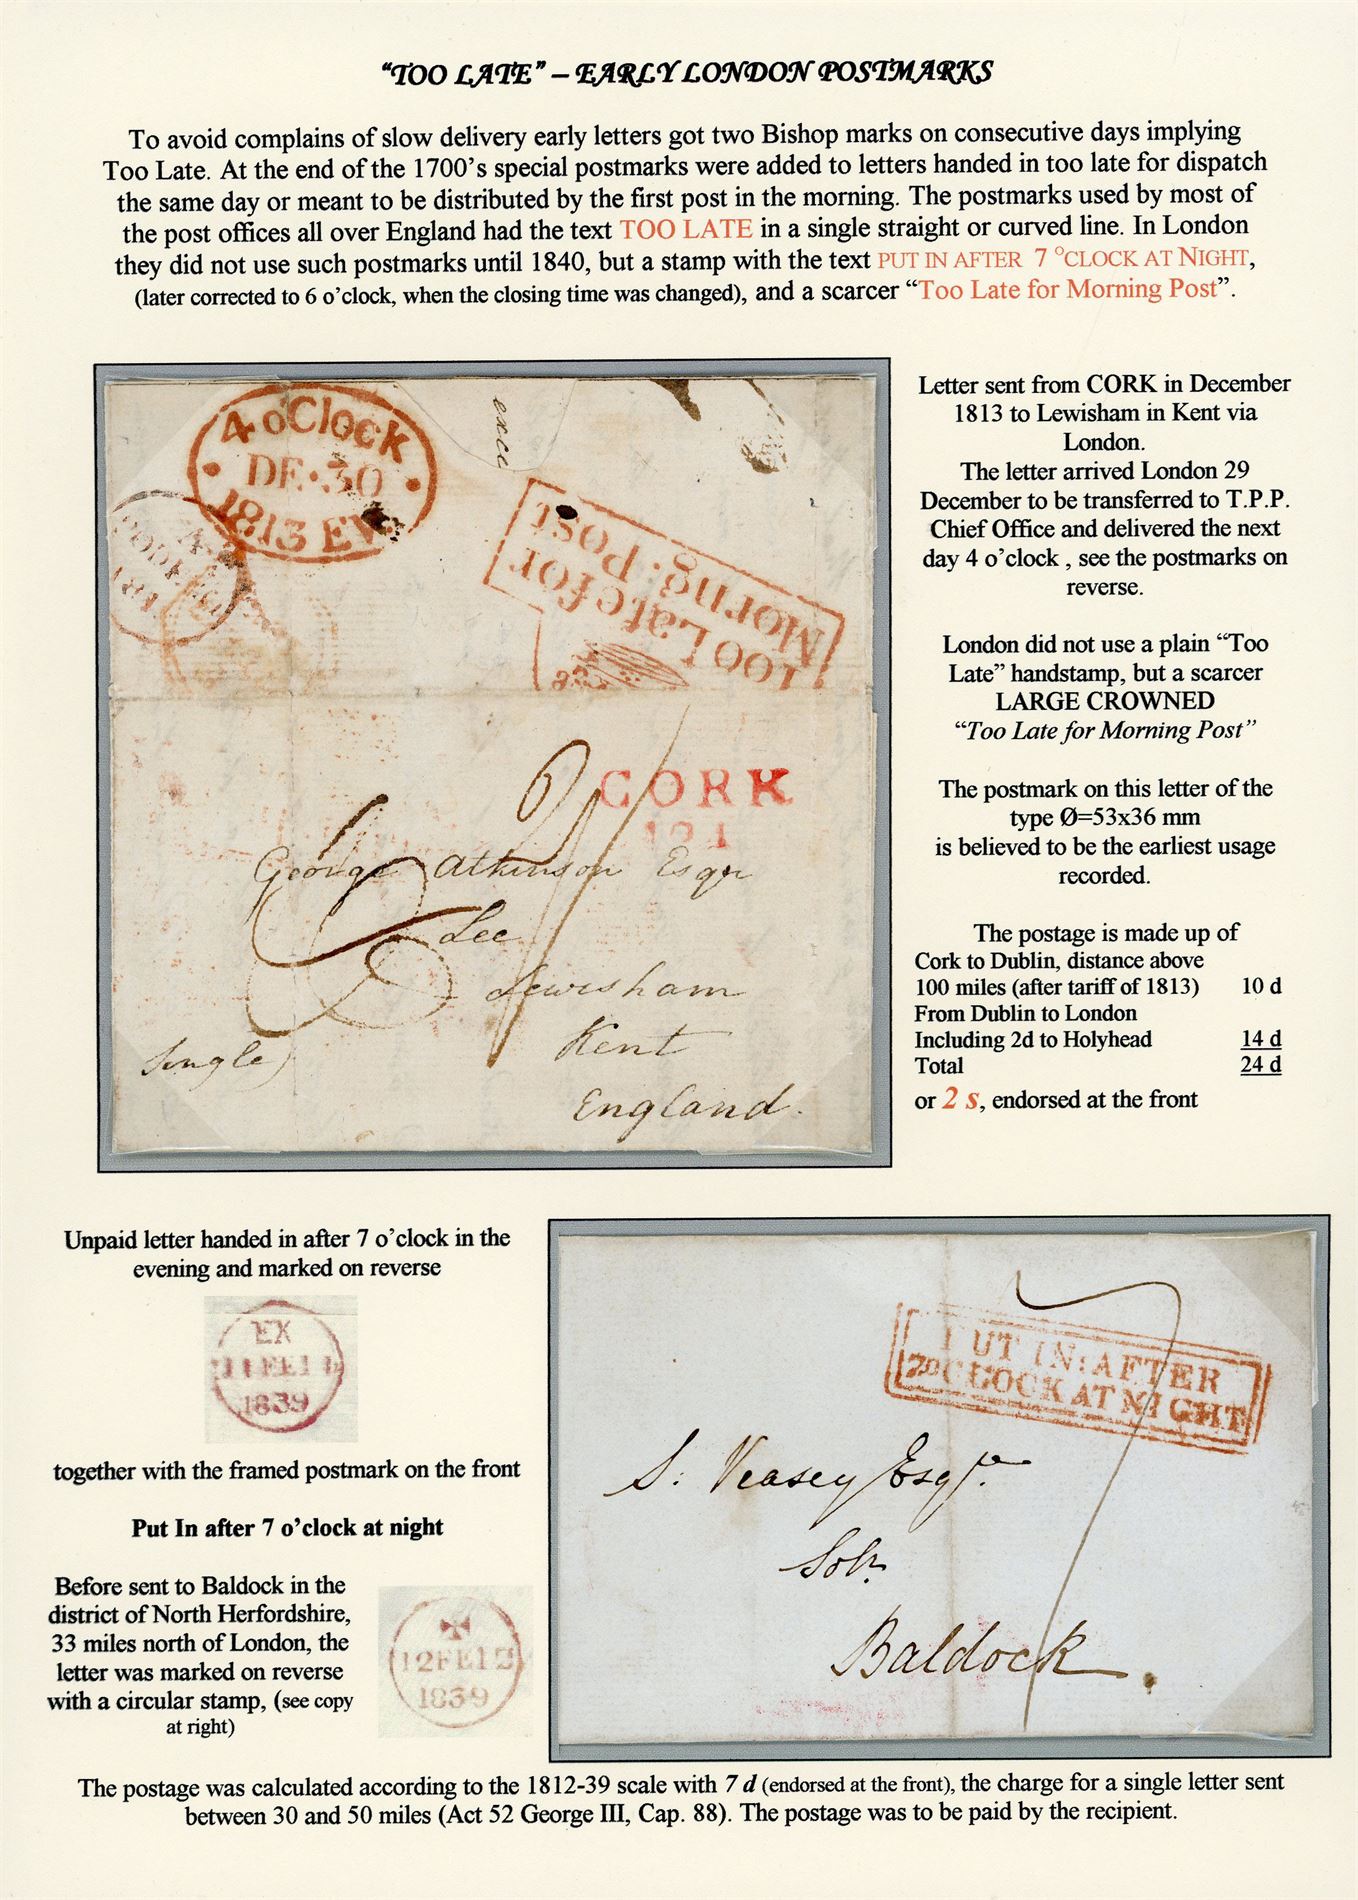 “TOO LATE” – EARLY LONDON POSTMARKS
To avoid complains of slow delivery early letters got two Bishop marks on consecutive days implying
Too Late. At the end of the 1700’s special postmarks were added to letters handed in too late for dispatch
the same day or meant to be distributed by the first post in the morning. The postmarks used by most of
the post offices all over England had the text TOO LATE in a single straight or curved line. In London
they did not use such postmarks until 1840, but a stamp with the text PUT IN AFTER 7 OCLOCK AT NIGHT,
(later corrected to 6 o’clock, when the closing time was changed), and a scarcer “Too Late for Morning Post”.
4 o'Clock
DE·30
1813 EV
Too Late for
Morng. Post
CORK
George Atkinson Esqr
Lee
Lewisham
Kent
England.
Single
Letter sent from CORK in December
1813 to Lewisham in Kent via
London.
The letter arrived London 29
December to be transferred to T.P.P.
Chief Office and delivered the next
day 4 o’clock , see the postmarks on
reverse.
London did not use a plain “Too
Late” handstamp, but a scarcer
LARGE CROWNED
“Too Late for Morning Post”
The postmark on this letter of the
type Ø=53x36 mm
is believed to be the earliest usage
recorded.
The postage is made up of
Cork to Dublin, distance above
100 miles (after tariff of 1813) 10 d
From Dublin to London
Including 2d to Holyhead 14 d
Total 24 d
or 2 s, endorsed at the front
Unpaid letter handed in after 7 o’clock in the
evening and marked on reverse
EX
11FE11
1839
together with the framed postmark on the front
Put In after 7 o’clock at night
Before sent to Baldock in the
district of North Herfordshire,
33 miles north of London, the
letter was marked on reverse
with a circular stamp, (see copy
at right)
12FE12
1839
PUT IN: AFTER
7 O CLOCK AT NIGHT
7
S: Veasey Esqre.
Solr.
Baldock
The postage was calculated according to the 1812-39 scale with 7 d (endorsed at the front), the charge for a single letter sent
between 30 and 50 miles (Act 52 George III, Cap. 88). The postage was to be paid by the recipient.